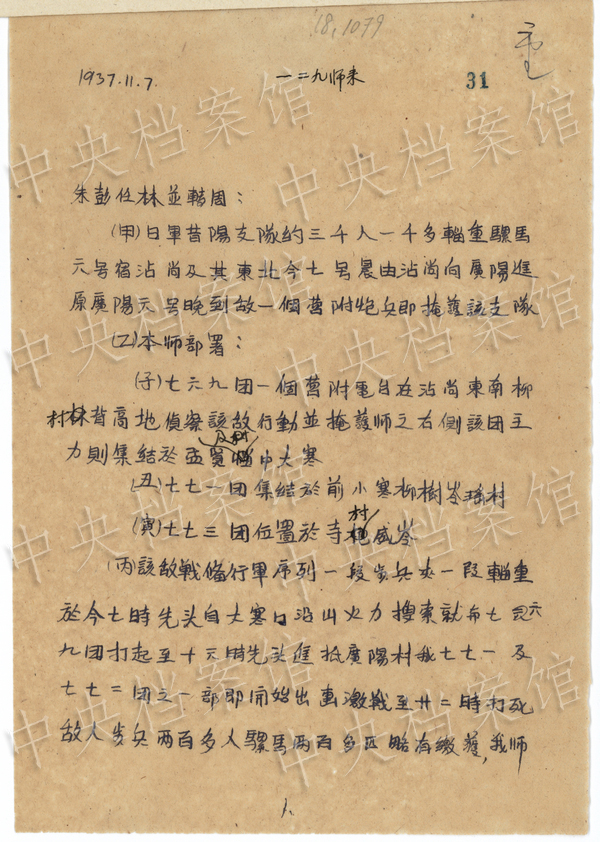 18,1079
1937.11.7.
一二九师来
31
朱彭任林並轉周：
(甲)日軍昔陽支隊約三千人一千多輜重騾馬
元号宿沾尚及其東北今七号晨由沾尚向廣陽進
原廣陽元号晚到敌一個营附炮兵即掩護該支隊
(乙)本师部署：
(子)七六九团一個营附電台在沾尚東南柳
林背高地偵察該敌行動並掩護师之右側該团主
村
力則集結於
及
村
中大寒
(丑)七七一团集結於前小寒柳樹岺瑶村
(寅)七七三团位置於寺
村
威岺
(丙)該敌戰備行軍序列一段步兵夾一段輜重
於今七時先头自大寒口沿山火力搜索就布七
六
九团打起至十六時先头進抵廣陽村我七七一及
七七二团之一部即開始出畫激戰至廿二時打死
敌人步兵两百多人騾馬两百多匹略有缴獲，我师
1.
中央档案馆
中央档案馆
中央档案馆
中央档案馆
中央档案馆
中央档案馆
中央档案馆
中央档案馆